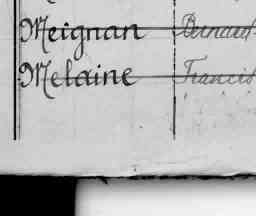 Meignan Bernard
Melaine Francis